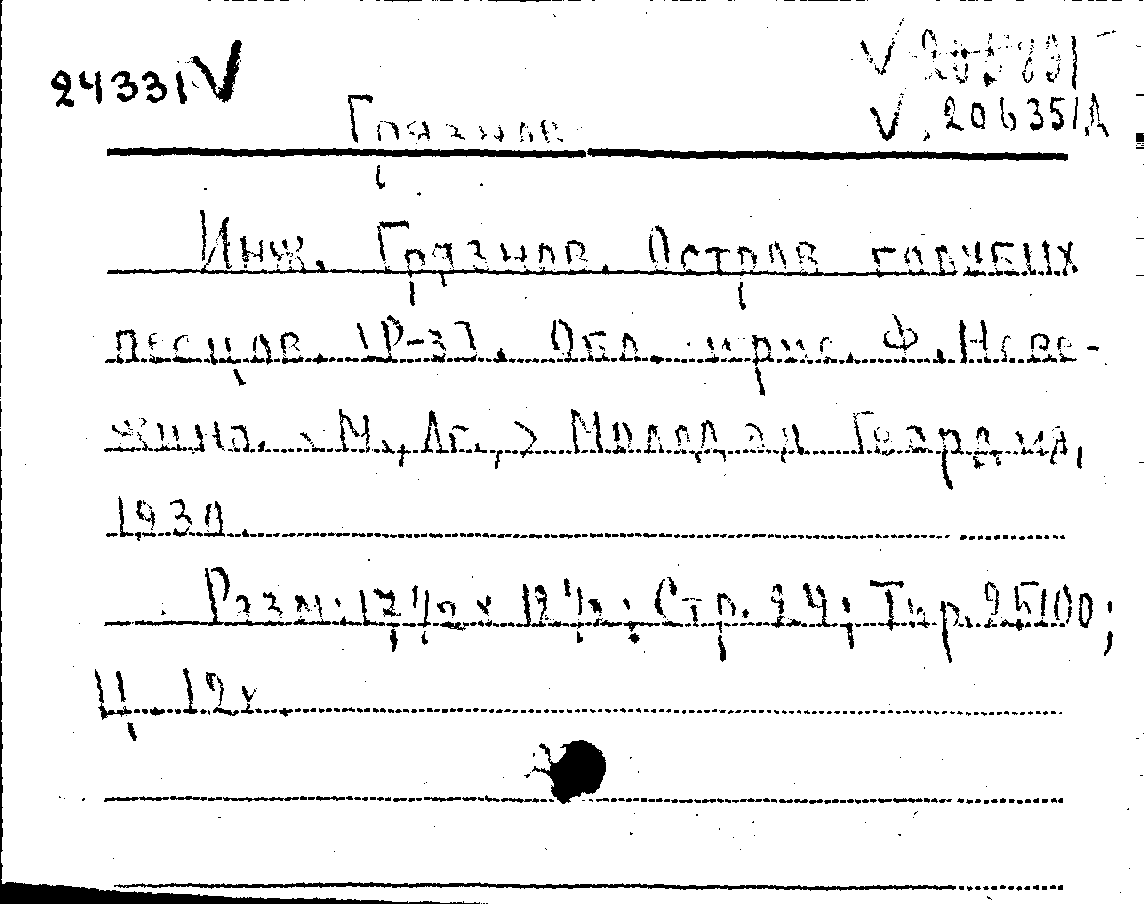 24331 V
V 20635/А
Грязнов
Инж. Грязнов. Остров голубых
песцов. Обл. и рис. Ф. Неве-
жина. <М., Лг.,> Молодая Гвардия,
1930.
Разм: 17 1/2 x 12 1/2; Стр. 24; Тир. 25100;
Ц. 12к.